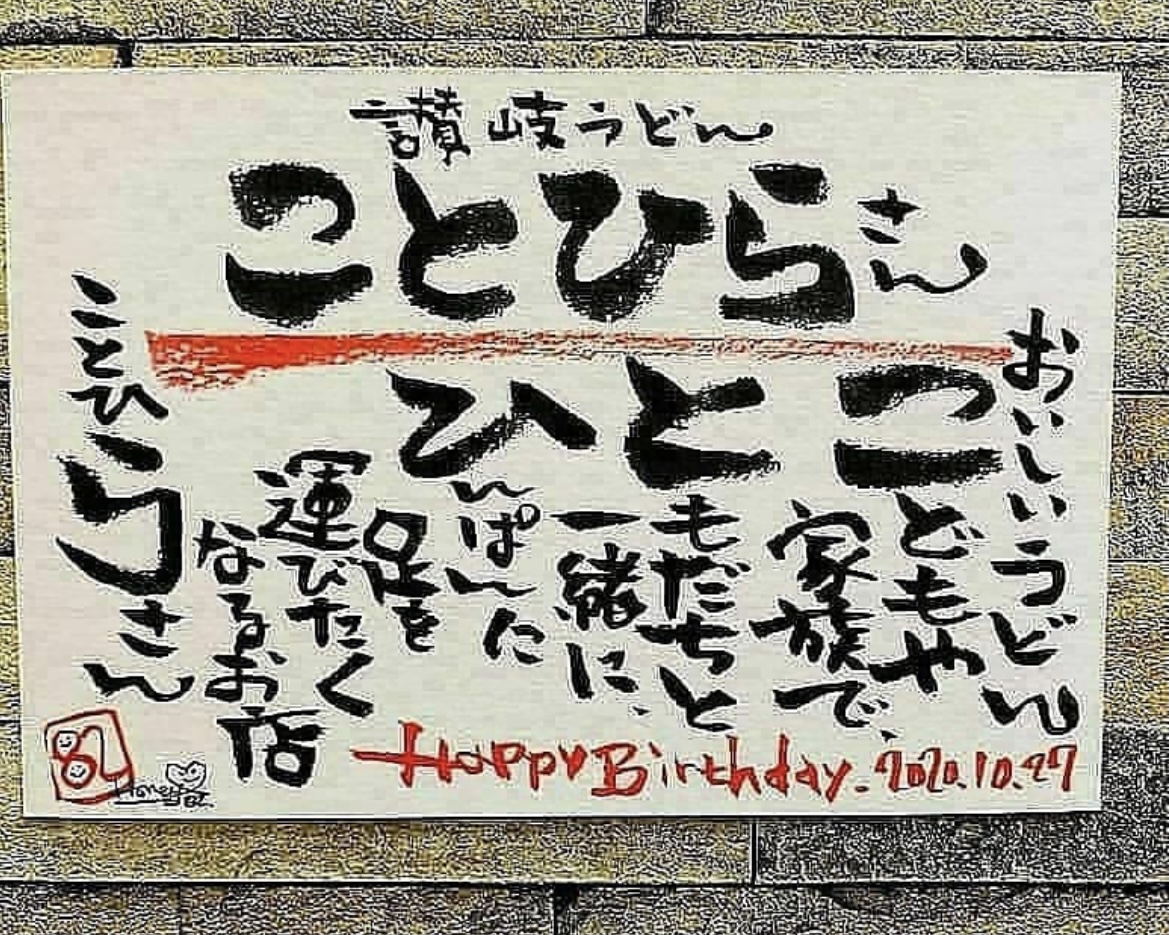 讃岐うどん
ことひらさん
おいしいうどん
こどもや
家族で、
ともだちと
一緒に、
ひんぱんに
足を
運びたく
なるお店
ことひらさん
Happy Birthday. 2020.10.27